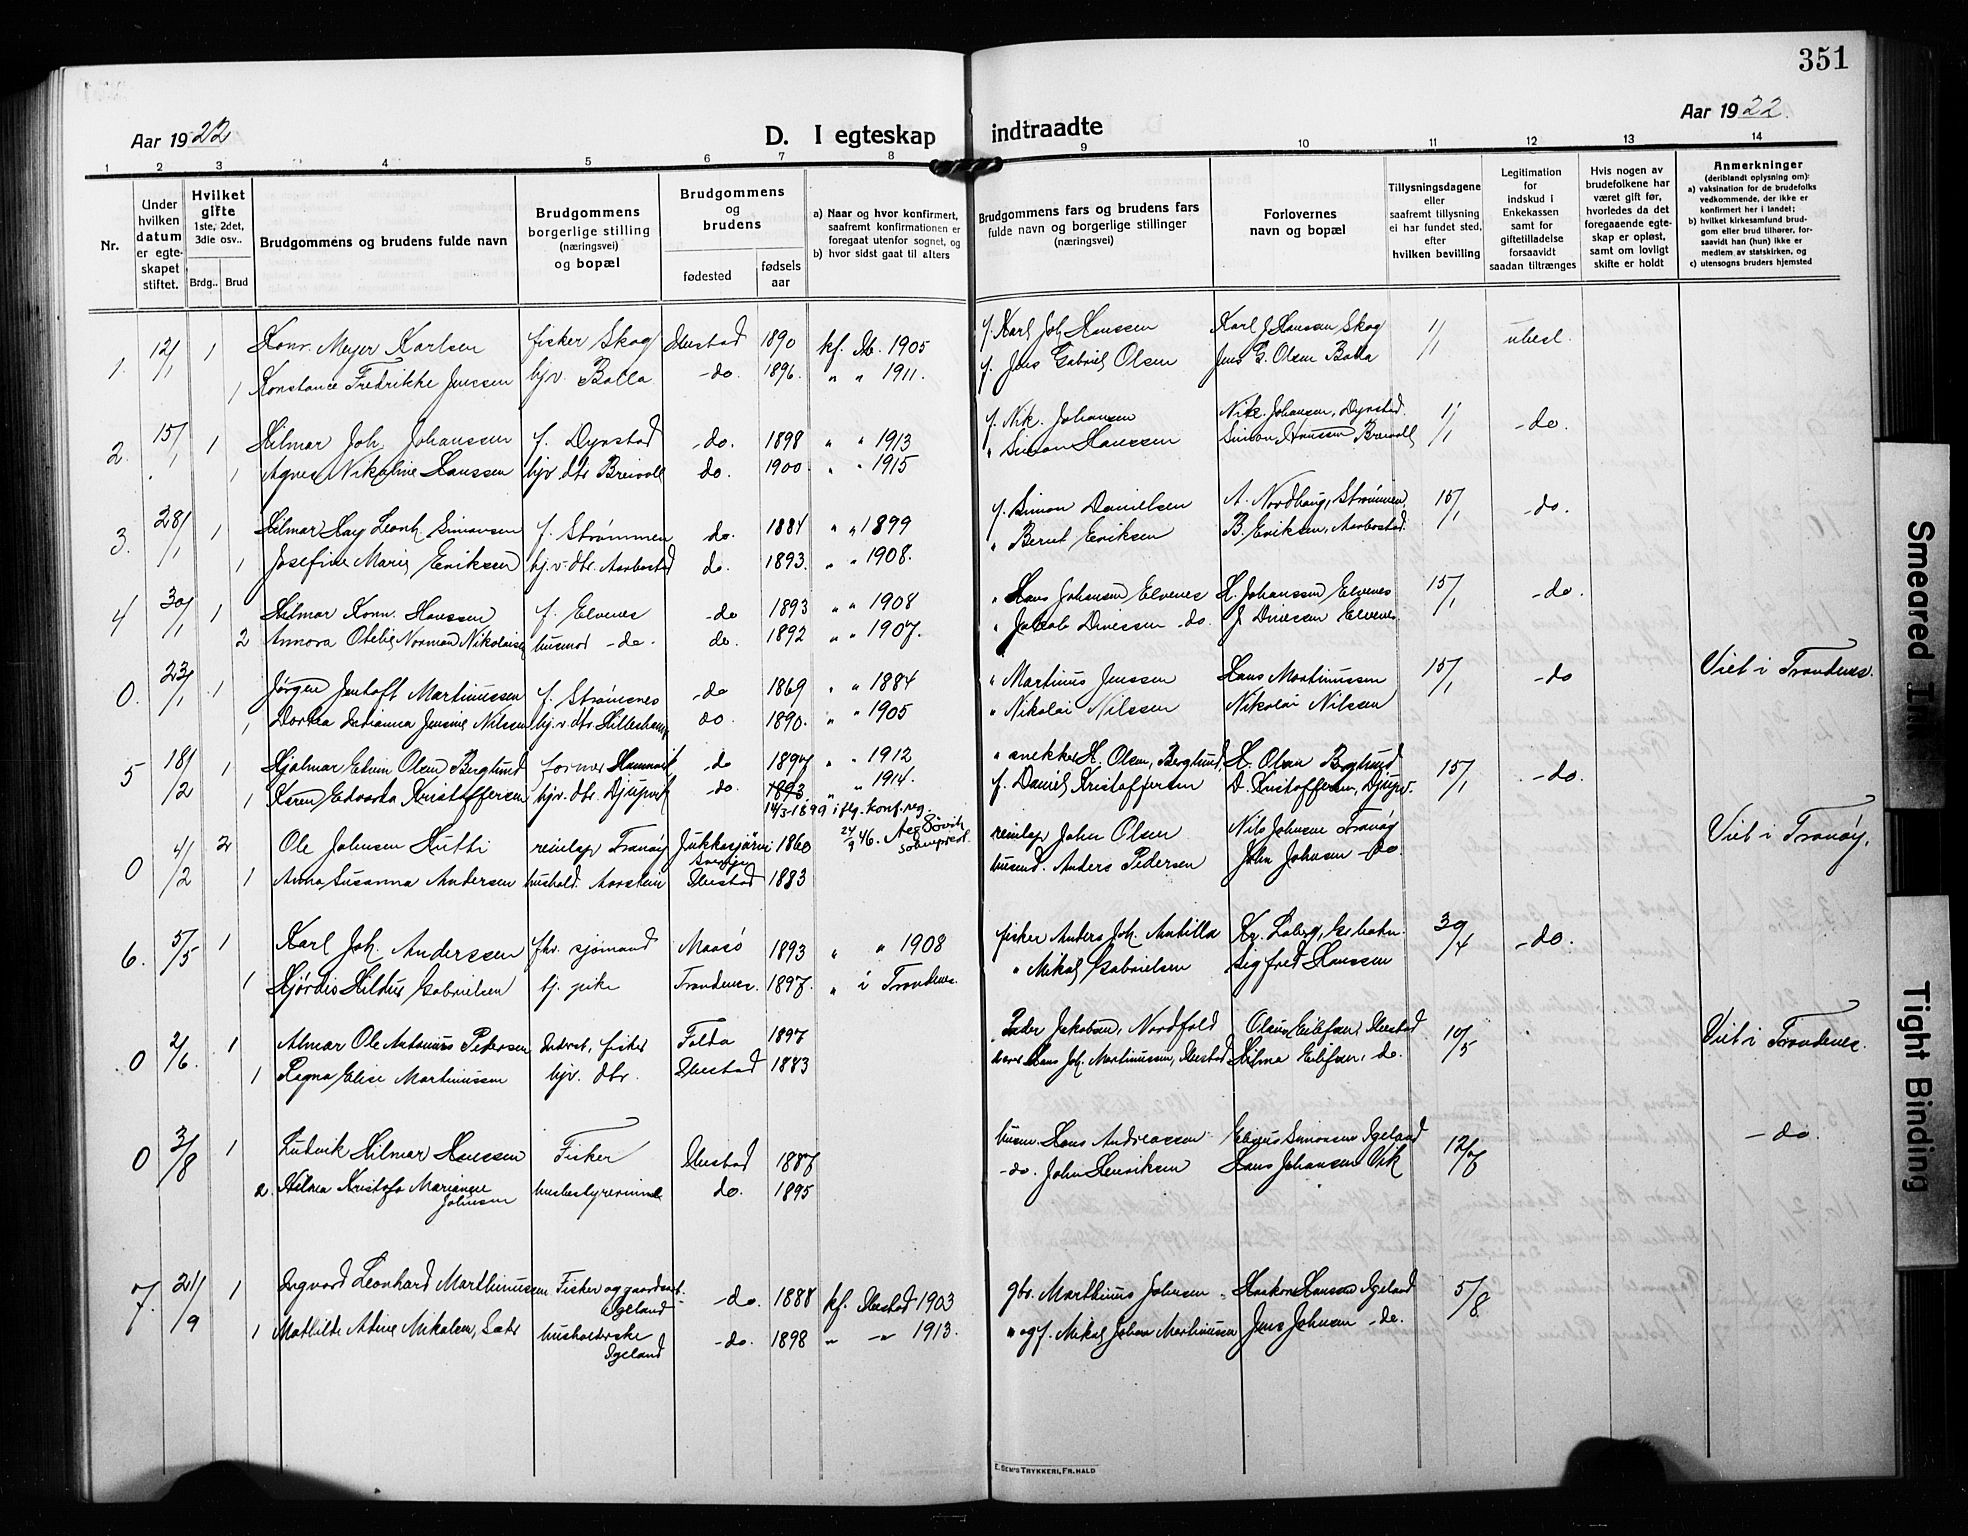 351
Aar 1922
D. I egteskap indtraadte
Aar 1922.
1 2 3 4 5 6 7 8 9 10 11 12 13 14
Nr.
Under hvilken datum er egteskapet stiftet.
Hvilket gifte 1ste, 2det, 3die osv..
Brdg.. Brud
Brudgommens og brudens fulde navn
Brudgommens borgerlige stilling (næringsvei) og bopæl
Brudgommens og brudens
fødested
fødselsaar
a) Naar og hvor konfirmert, saafremt konfirmationen er foregaat utenfor sognet, og
b) hvor sidst gaat til alters
Brudgommens fars og brudens fars fulde navn og borgerlige stillinger (næringsvei)
Forlovernes navn og bopæl
Tillysningsdagene eller saafremt tillysning ei har fundet sted, efter hvilken bevilling
Legitimation for indskud i Enkekassen samt for giftetilladelse forsaavidt saadan tiltrænges
Hvis nogen av brudefolkene har været gift før, hvorledes da det foregaaende egteskap er opløst, samt om lovligt skifte er holdt
Anmerkninger (deriblandt oplysning om): a) vaksination for de brudefolks vedkommende, der ikke er konfirmert her i landet; b) hvilket kirkesamfund brudgom eller brud tilhører, forsaavidt han (hun) ikke er medlem av statskirken, og c) utensogns bruders hjemsted
1. 12/1 1 Konr. Meyer Karlsen fisker Skog Ibestad 1890 kf. Ib. 1905 f. Karl Joh Hanssen Karl J Hanssen Skog 1/1 ubest.
1 Konstance Fredrikke Jenssen hjv. Bolla -do. 1896. " " 1911. f. Jens Gabriel Olsen Jens G. Olsen Bolla
2. 15/1 1 Hilmar Joh Johanssen f. Dyrstad -do. 1898 " " 1913 f. Nik. Johansen Nik. Johansen, Dyrstad. 1/1 -do.
1 Agnes Nikoline Hanssen hjv dtr Breivoll do. 1900 " " 1915 " Simon Hanssen Simon Hanssen Breivoll
3. 28/1 1 Hilmar Hag Leonh Simonsen f. Strømmen do. 1884 " " 1899 f. Simon Danielsen A. Nordhaug, Strømmen, 15/1 -do.
1 Josefine Marie Eriksen hj.v. dtr. Aarbostad do. 1893. " " 1908. " Bernt Eriksen B. Eriksen, Aarbostad.
4 30/1 1 Hilmar Konr. Hanssen f. Elvenes -do 1893 " " 1908 " Hans Johansen Elvenes H. Johanssen Elvenes 15/1 -do.
2 Annora Normad Nikolaisen husmor -do. do. 1892 " " 1907. " Jakob Dinessen -do. J Dinessen Elvenes.
0. 23/1 1 Jørgen Jentoft Martinussen f. Strømsnes -do 1869 " " 1884 " Martinus Jenssen Hans Martinussen 15/1 -do Viet i Trondenes.
1 Dortea Jensine Nilsen hj.v. dtr. Hilleshamn do. 1890. " " 1905 " Nikolai Nilssen Nikolai Nilsen
5 18/2 1 Hjalmar Edvin Olsen Berglund former Hamnvik -do 1897 " " 1912 " H. Olsen, Berglund, H. Olsen Berglund 15/1 -do.
1 Karen Edvarda Kristoffersen hjv. dtr. Djupvik -do. 1893. " " 1914. f. Daniel Kristoffersen D. Kristoffersen, Djupv-
14/3-1899 iflg. konf.reg. 24/9 46. sokneprest.
0 4/2 2 Ole Johnsen Hutti reinlap Tranøy Jukkasjärvi Sverige 1860 reinlap John Olsen Nils Johnsen Tranøy Viet i Tranøy.
1 Anna Susanna Andersen hushold. Aarstein Ibestad 1883 husmd. Anders Pedersen John Johnsen -do
6. 5/5 1 Karl Joh. Anderssen fhv. sjømand Maasø 1893 " " 1908 fisker Anders Joh. Antilla Kr. Loberg, 30/4 -do.
1 Hjørdis Hildur Gabrielsen hj. pike Trondenes. 1897. " i Trondenes. " Mikal Gabrielsen Sigfred Hanssen
0 2/6. 1 Almar Ole Antonius Pedersen fisker Folda 1897 Peder Jakobsen, Nordfold Eilefsen, Ibestad 10/5 Viet i Trondenes.
1 Ragna Elise Martinussen hjv. dtr. Ibestad 1883 Hans Joh. Martinussen, Ibestad Hilma Eilefsen, do.
0 3/8 1 Ludvik Hilmar Hanssen Fisker Ibestad 1887 husm. Hans Andreassen Elinus Simonsen Igeland 12/7 -do.
2. Hilma Kristofa Marianne Johnsen husbestyrerinne do. 1895 -do. John Henriksen Hans Johansen Vik
7. 21/9 1 Ingvard Leonhard Marthinussen Fisker og gaardsarb. Igeland -do. 1888 kf. Ibestad 1903 gbr. Marthinus Johnsen Haakon Hansen Igeland 5/8
1 Mathilde Adine Mikalsen, Sætr husholderske Igeland -do. 1898 " -"- 1913. " og f. Mikal Johan Martinussen Jens Johnsen -do.
E. SEM'S TRYKKERI, FR. HALD
Smeared INK
Tight Binding